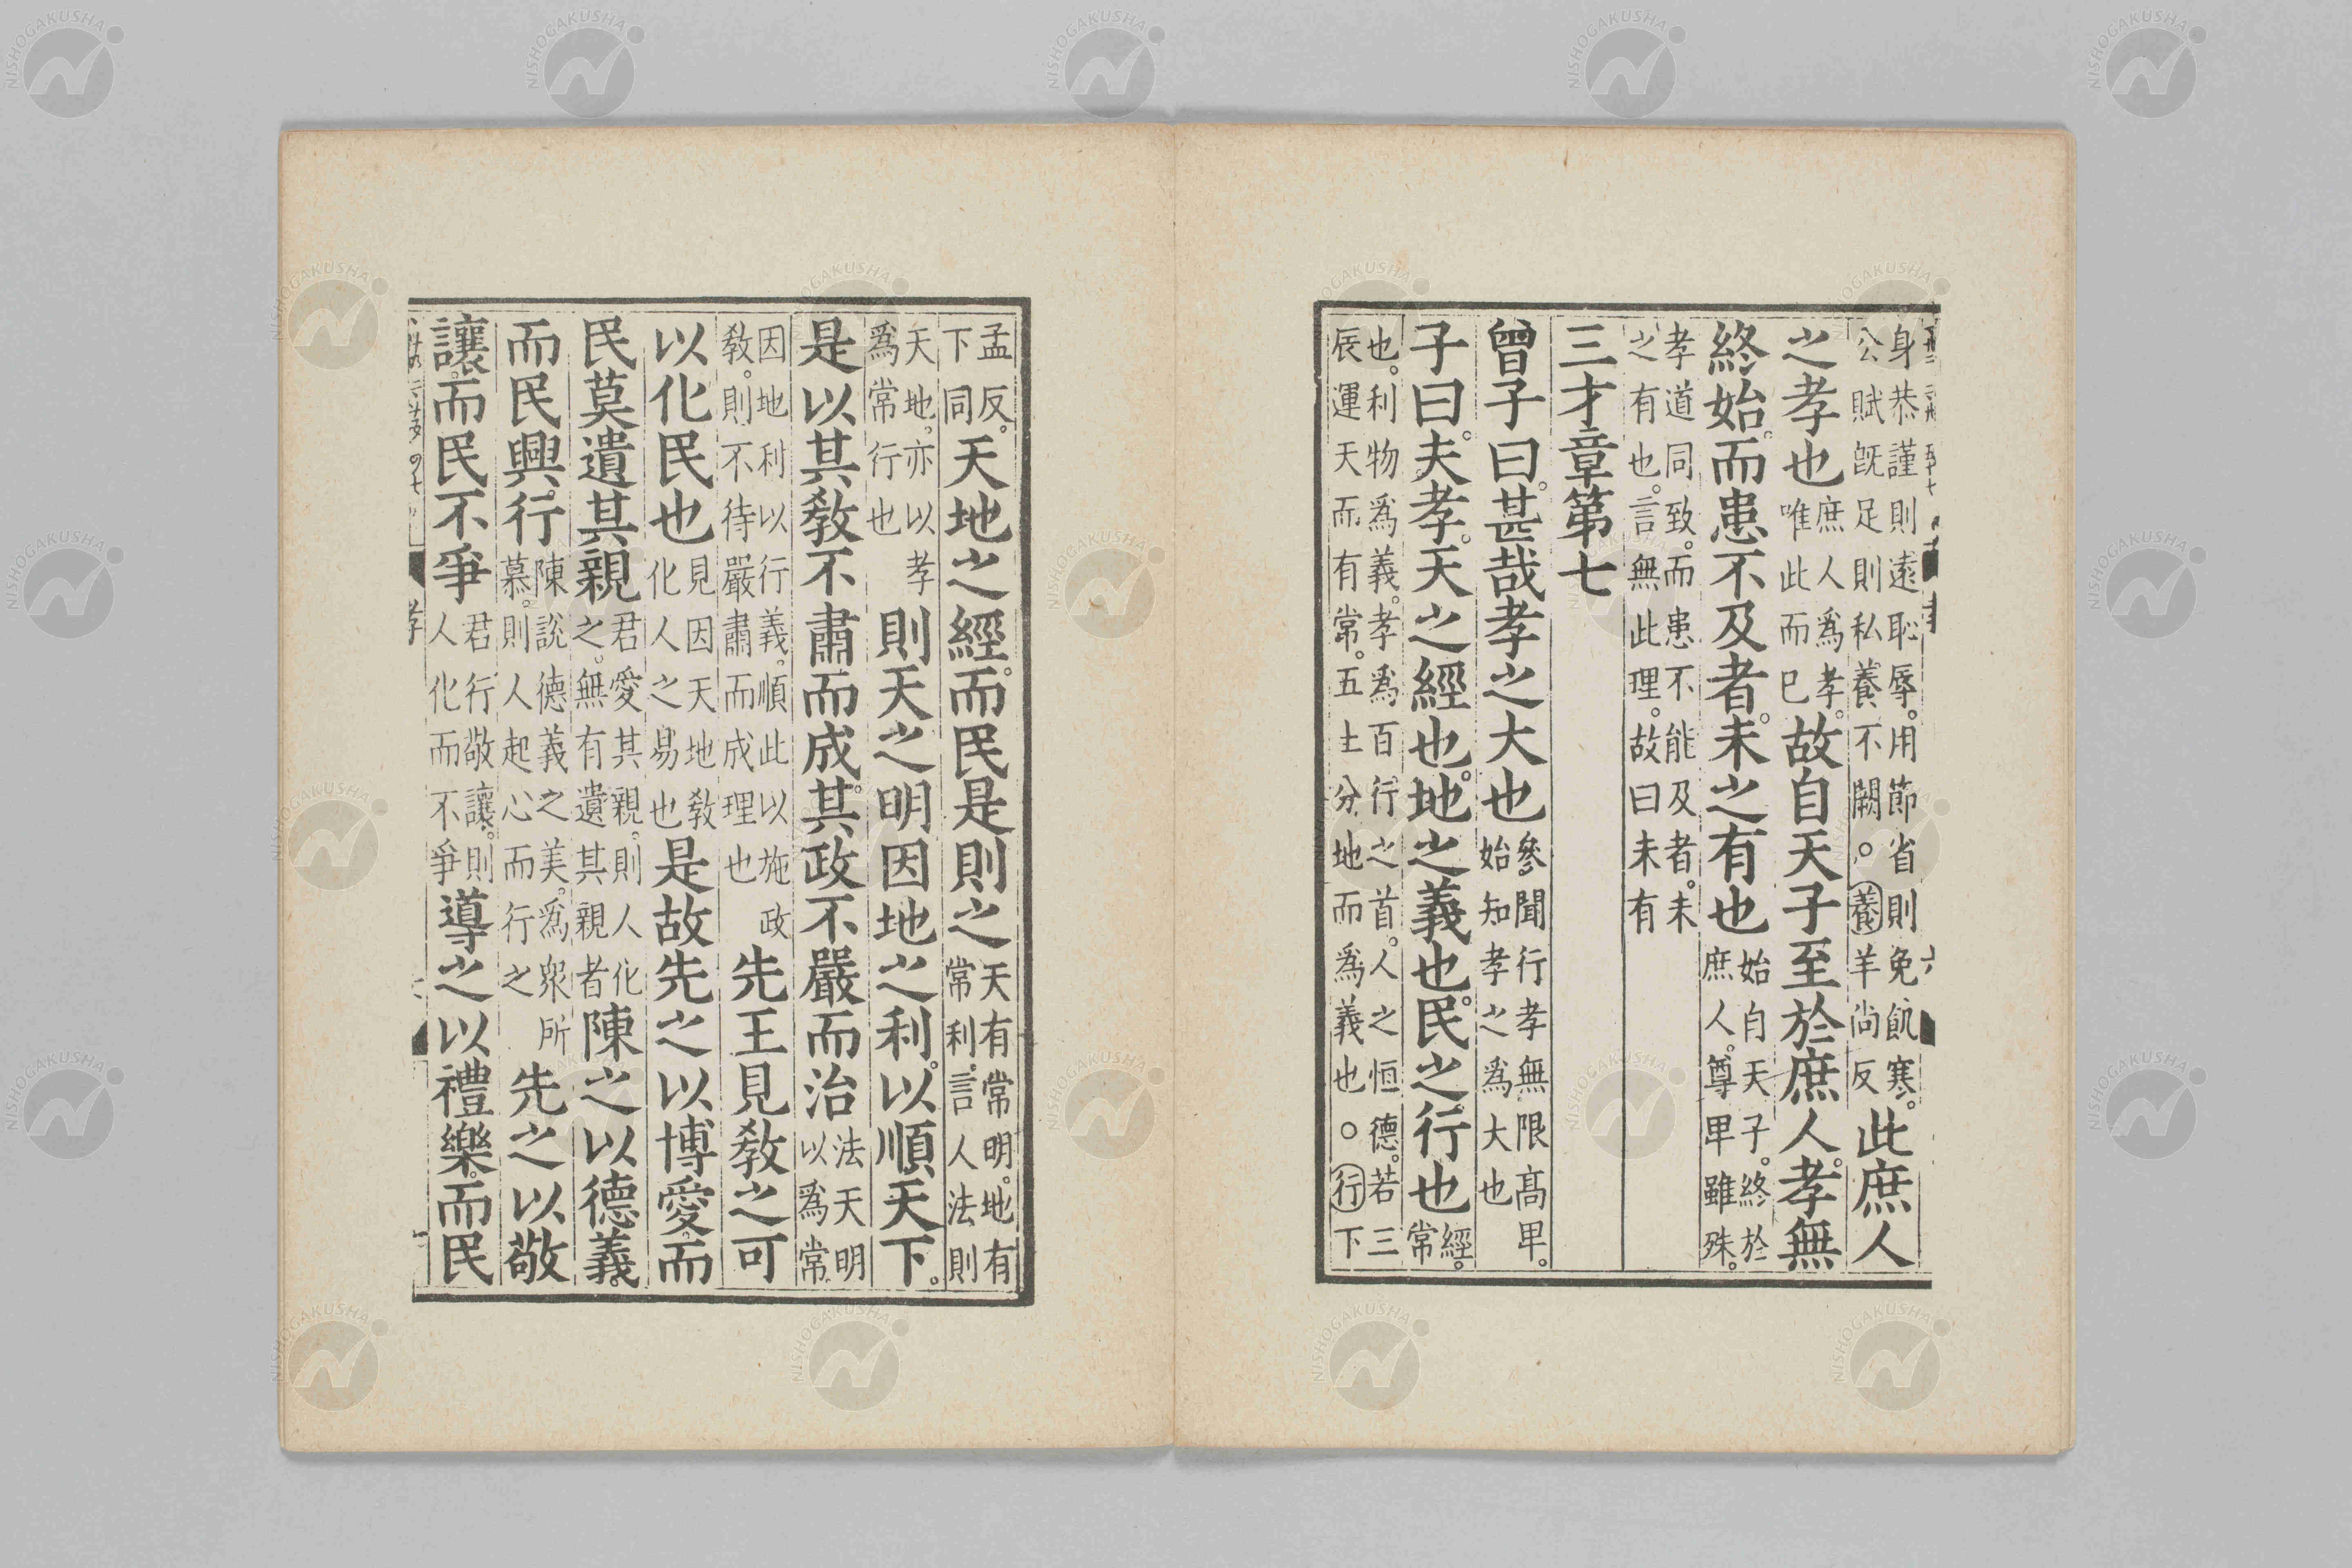 身恭謹則遠恥辱。用節省則免飢寒。公賦旣足則私養不闕。○養羊尚反此庶人
之孝也庶人爲孝。唯此而已故自天子至於庶人。孝無
終始。而患不及者。未之有也始自天子。終於庶人。尊卑雖殊。
孝道同致。而患不能及者。未之有也。言無此理。故曰未有
三才章第七
曾子曰。甚哉孝之大也參聞行孝無限高卑。始知孝之爲大也
子曰。夫孝。天之經也。地之義也。民之行也經。常
也。利物爲義。孝爲百行之首。人之恒德。若三辰運天而有常。五土分地而爲義也。○行下
孟反。下同天地之經。而民是則之天有常明。地有常利。言人法則
天地。亦以孝爲常行也則天之明因地之利。以順天下。
是以其敎不肅而成。其政不嚴而治法天明以爲常
因地利以行義。順此以施政敎。則不待嚴肅而成理也先王見敎之可
以化民也見因天地敎化人之易也是故先之以博愛。而
民莫遺其親君愛其親。則人化之。無有遺其親者陳之以德義。
而民興行陳說德義之美。爲衆所慕。則人起心而行之先之以敬
讓。而民不爭君行敬讓。則人化而不爭導之以禮樂。而民
NISHOGAKUSHA